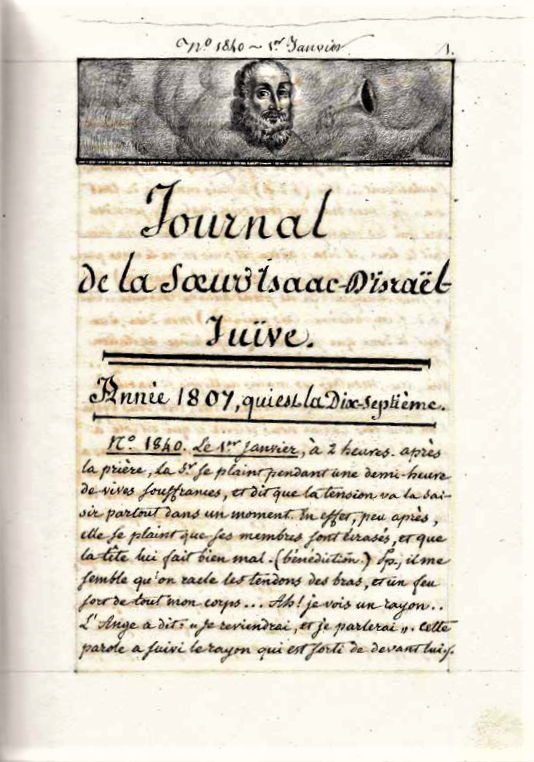 N.º 1840 ~ 1.er Janvier.
1.
Journal
de la Sœur Isaac-D'israël-
Juïve.
Année 1807, qui est la Dix-septième.
N.º 1840. Le 1.er Janvier, à 2 heures après
la prière, la S.r se plaint pendant une demi-heure
de vives souffrances, et dit que la tension va la sai-
sir partout dans un moment. En effet, peu après,
elle se plaint que ses membres sont écrasés, et que
la tête lui fait bien mal. (bénédiction.) Sp., il me
semble qu'on racle les tendons des bras, et un feu
sort de tout mon corps... Ah! je vois un rayon..
L'Ange a dit: "Je reviendrai, et je parlerai". Cette
parole a suivi le rayon qui est sorti de devant lui